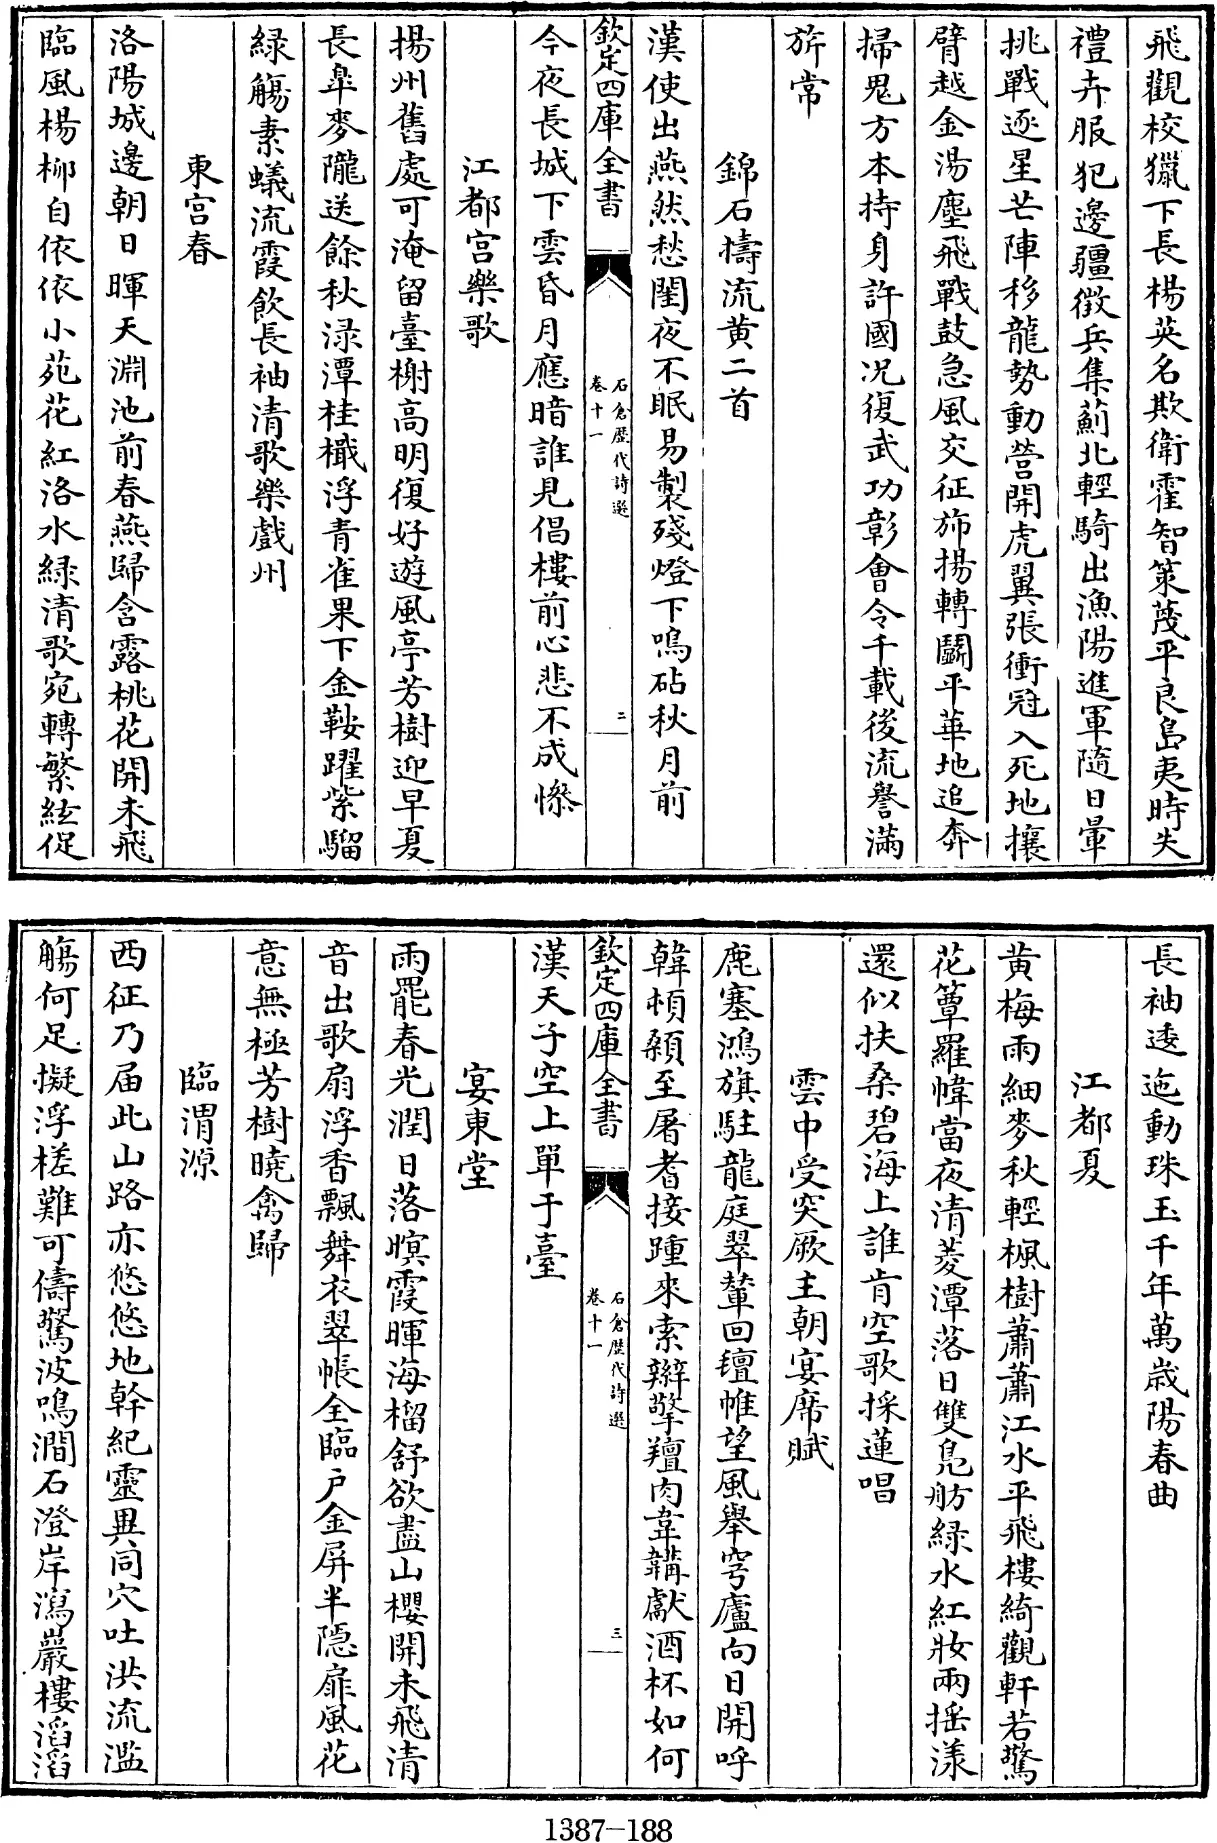 飛觀校獵下長楊英名欺衛霍智策蔑平良島夷時失
禮卉服犯邊疆徵兵集薊北輕騎出漁陽進軍隨日暈
挑戰逐星芒陣移龍勢動營開虎翼張衝冠入死地攘
臂越金湯塵飛戰鼓急風交征斾揚轉鬭平華地追奔
掃鬼方本持身許國况復武功彰會令千載後流譽滿
旂常
錦石擣流黄二首
漢使出燕然愁閨夜不眠易製殘燈下鳴砧秋月前
欽定四庫全書
石倉歴代詩選
卷十一
三
今夜長城下雲昏月應暗誰見倡樓前心悲不成慘
江都宫樂歌
揚州舊處可淹留臺榭高明復好遊風亭芳樹迎早夏
長臯麥隴送餘秋渌潭桂檝浮青雀果下金鞍躍紫騮
緑觴素蟻流霞飲長袖清歌樂戲州
東宫春
洛陽城邊朝日暉天淵池前春燕歸含露桃花開未飛
臨風楊柳自依依小苑花紅洛水緑清歌宛轉繁絃促
長袖逶迤動珠玉千年萬歳陽春曲
江都夏
黄梅雨細麥秋輕楓樹蕭蕭江水平飛樓綺觀軒若驚
花簟羅幃當夜清菱潭落日雙鳬舫緑水紅妝兩摇漾
還似扶桑碧海上誰肯空歌採蓮唱
雲中受突厥主朝宴席賦
鹿塞鴻旗駐龍庭翠輦回氊帷望風舉穹廬向日開呼
韓頓顙至屠耆接踵來索辮擎羶肉韋韝獻酒杯如何
欽定四庫全書
石倉歴代詩選
卷十一
三
漢天子空上單于臺
宴東堂
雨罷春光潤日落暝霞暉海榴舒欲盡山櫻開未飛清
音出歌扇浮香飄舞衣翠帳全臨户金屏半隠扉風花
意無極芳樹曉禽歸
臨渭源
西征乃届此山路亦悠悠地幹紀靈異同穴吐洪流濫
觴何足擬浮槎難可儔驚波鳴澗石澄岸瀉巖樓滔滔
1387-188